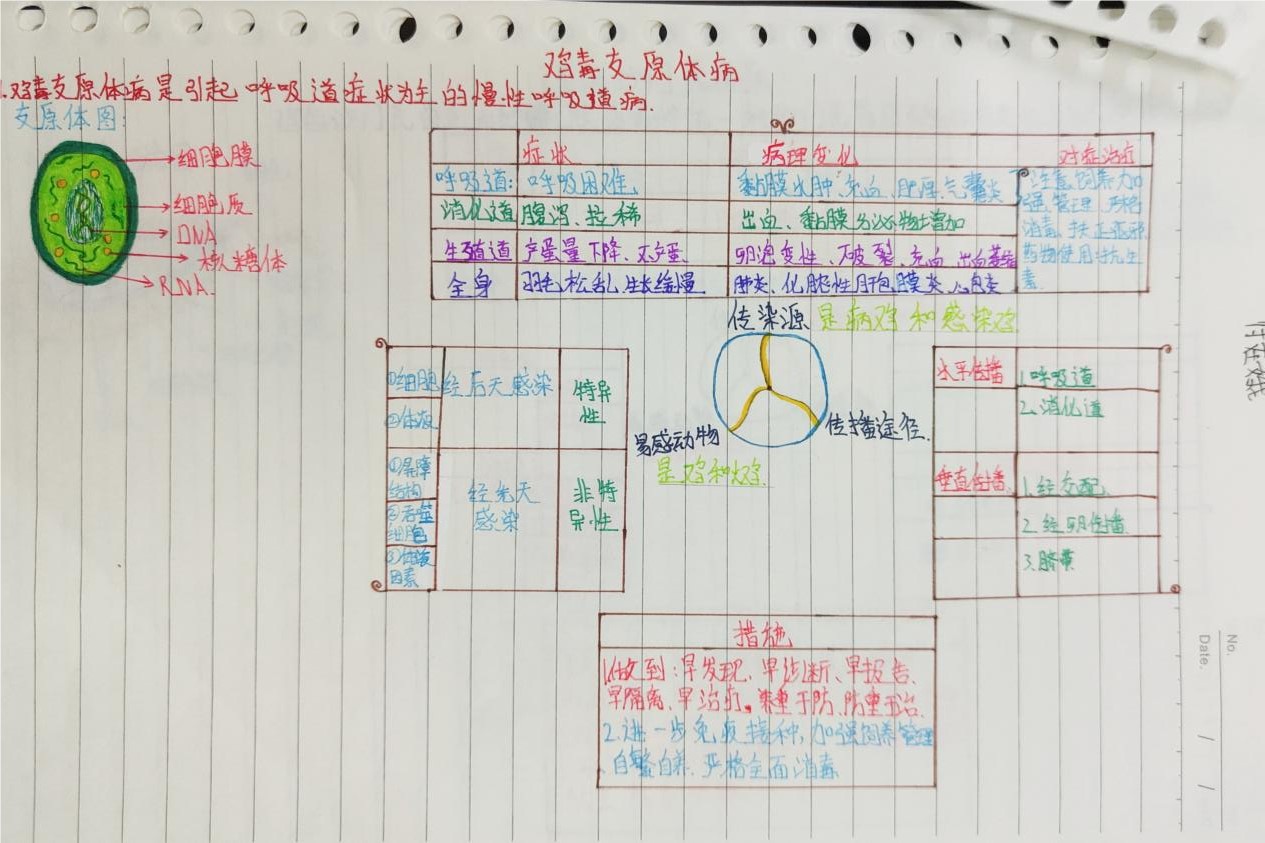 鸡毒支原体病
1.鸡毒支原体病是引起呼吸道症状为主的慢性呼吸道病.
支原体图:
细胞膜
细胞质
DNA
核糖体
RNA.
症状 病理变化 对症治疗
呼吸道: 呼吸困难, 黏膜水肿、充血、肥厚、气囊炎
消化道 腹泻、拉稀 出血、黏膜分泌物增加
生殖道 产蛋量下降、不产蛋 卵泡变性、破裂、充血、出血萎缩
全身 羽毛松乱、生长缓慢 肺炎、化脓性肝包膜炎、心包炎
注意饲养加
强管理 严格
消毒、扶正祛邪
药物使用抗生
素.
传染源 是病鸡和感染鸡.
易感动物
是鸡和火鸡.
传播途径.
①细胞 经后天感染 特异
②体液 性
①屏障
结构
②吞噬 经先天 非特
细胞 感染 异性
③体液
因素
水平传播 1.呼吸道
2.消化道
垂直传播 1.经交配.
2.经卵传播.
3.脐带
措施
1.做到:早发现、早诊断、早报告、
早隔离、早治疗。养重于防、防重于治.
2.进一步免疫接种,加强饲养管理
.自繁自养.严格全面消毒
No.
Date. / /